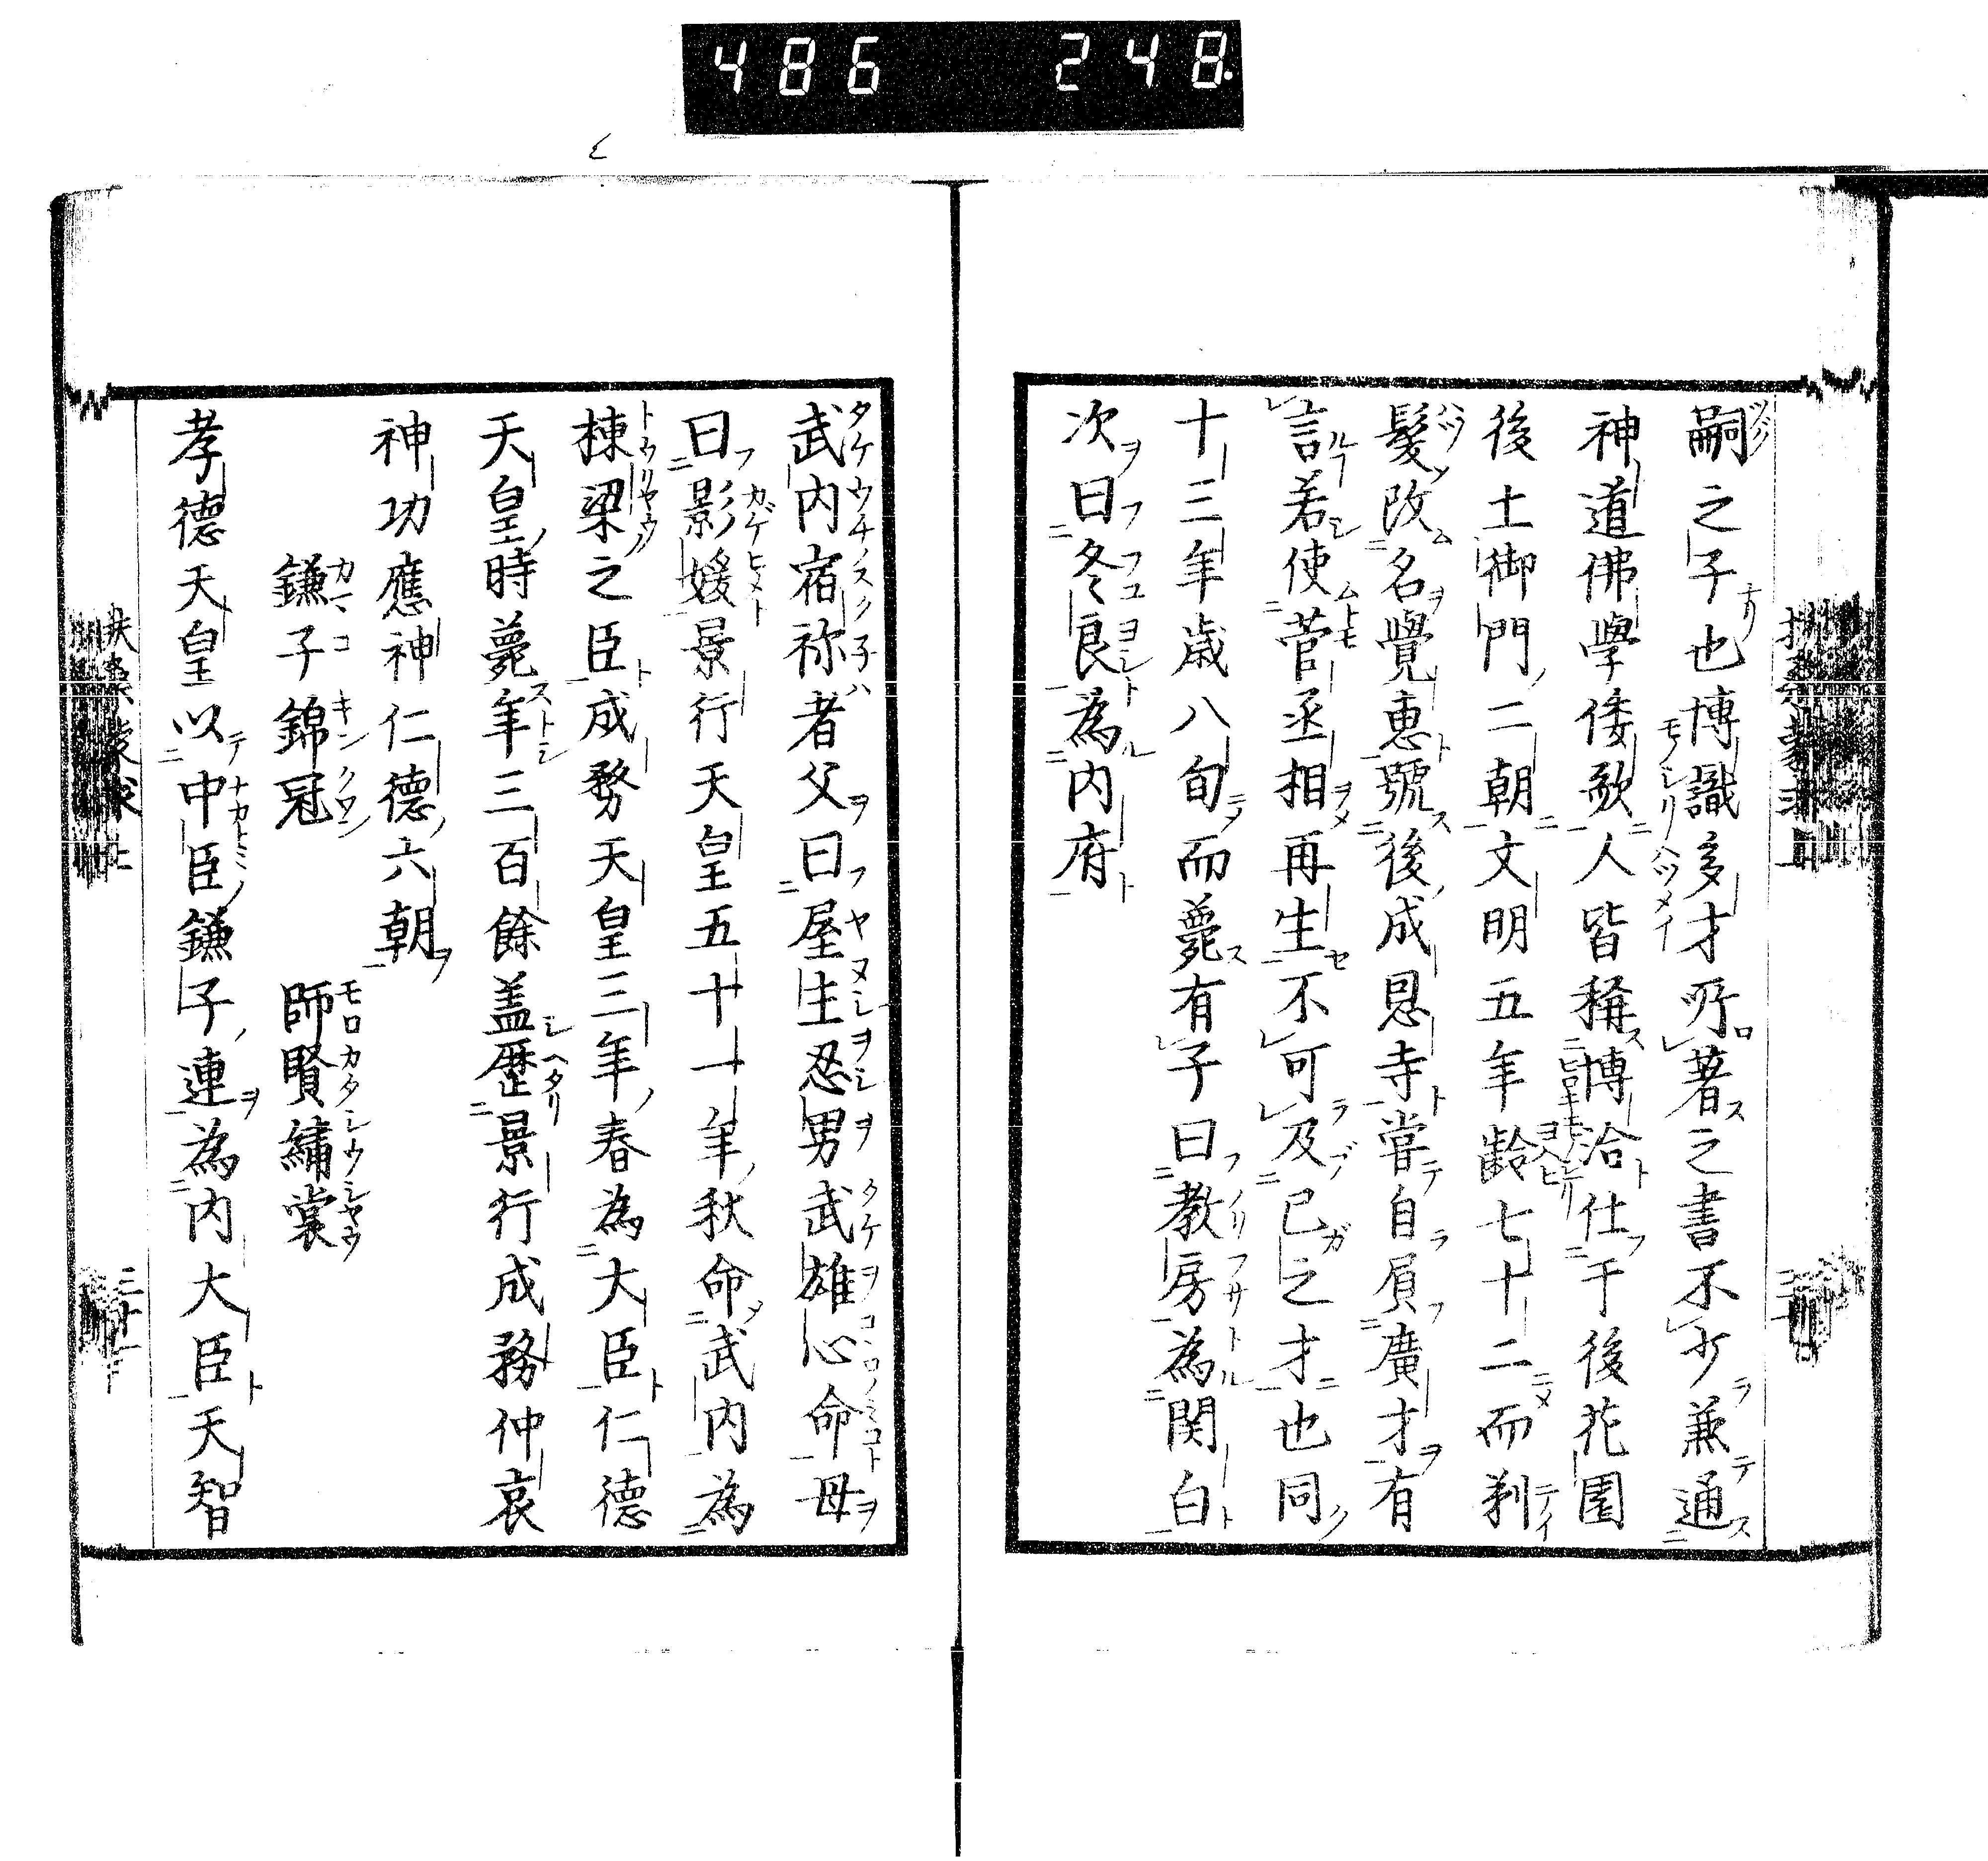 486 248
嗣之子也博識多才所著之書不少兼通
神道佛學倭歌人皆稱博洽仕于後花園
後土御門二朝文明五年齡七十二而剃
髮改名覺惠號後成恩寺嘗自負廣才有
言若使菅丞相再生不可及已之才也同
十三年歳八旬而薨有子曰教房為関白
次曰冬良為内府
武内宿祢者父曰屋主忍男武雄心命母
曰影媛景行天皇五十一年秋命武内為
棟梁之臣成務天皇三年春為大臣仁德
天皇時薨年三百餘盖歷景行成務仲哀
神功應神仁德六朝
鎌子錦冠　師賢繡裳
孝德天皇以中臣鎌子連為内大臣天智
扶桑蒙求上　三十一